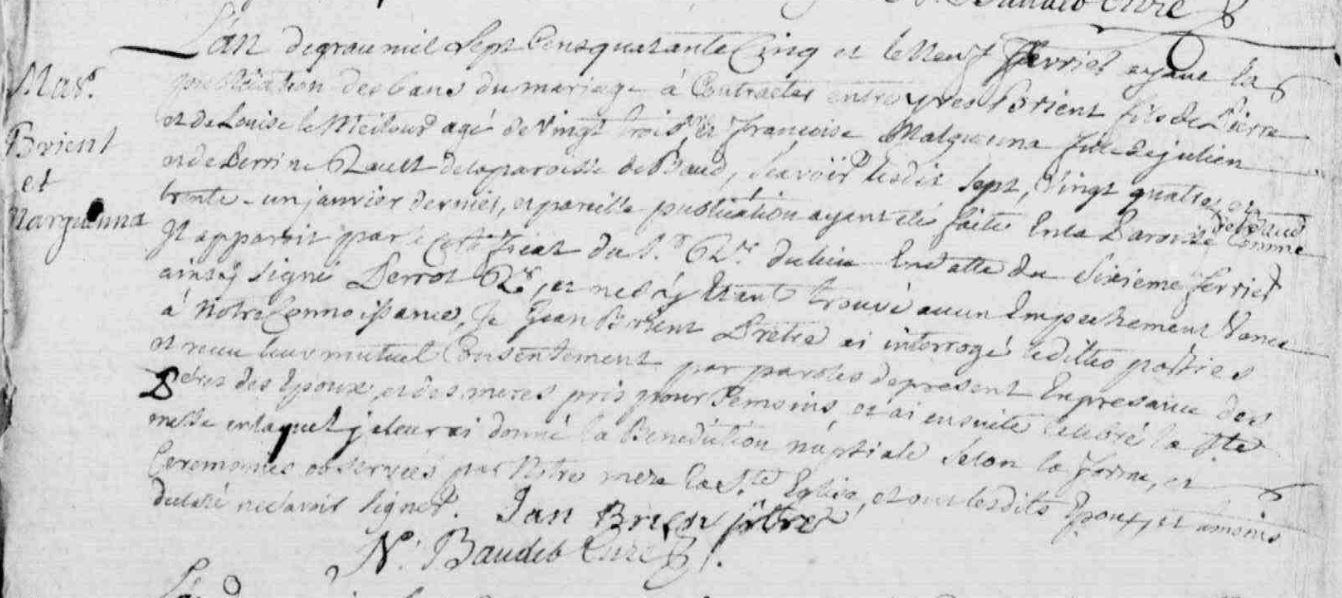 N. Baudeb Curé
L'an de grace mil Sept Cens quarante Cinq et le Neuf Fevrier ayant la
Mar.
publication des bans du mariage à Contracter entre yves Brient fils de Pierre
et de Louise le Meilour agé de Vingt trois et françoise Marguenna fille de julien
Brient
et de Perrine Rault de la paroisse de Baud, Scavoir les dix Sept, Vingt quatre et
et
trente-un janvier dernier, et pareille publication ayant été faite En la Paroisse de Baud Comme
Marguenna
Il apparoit par le Certificat du Sr. du lieu En datte du Sixieme fevrier
ainsy Signé Perrot et ne s'y Etant trouvé aucun Empechement Venu
à Notre Connoissance, Je Jean Brient Prêtre ai interrogé lesdittes parties
et reçu leur mutuel Consentement par paroles de present En presence des
Peres des Epoux, et des meres pris pour Temoins, et ai ensuite celebré la Ste
messe en laquel je leur ai donné la Benediction nuptiale Selon la forme, et
Ceremonies observées par Notre mere la Ste Eglise, et ont lesdits Epoux, et temoins
declaré ne Savoir Signer. Jan Brient ptre
N. Baudeb Curé